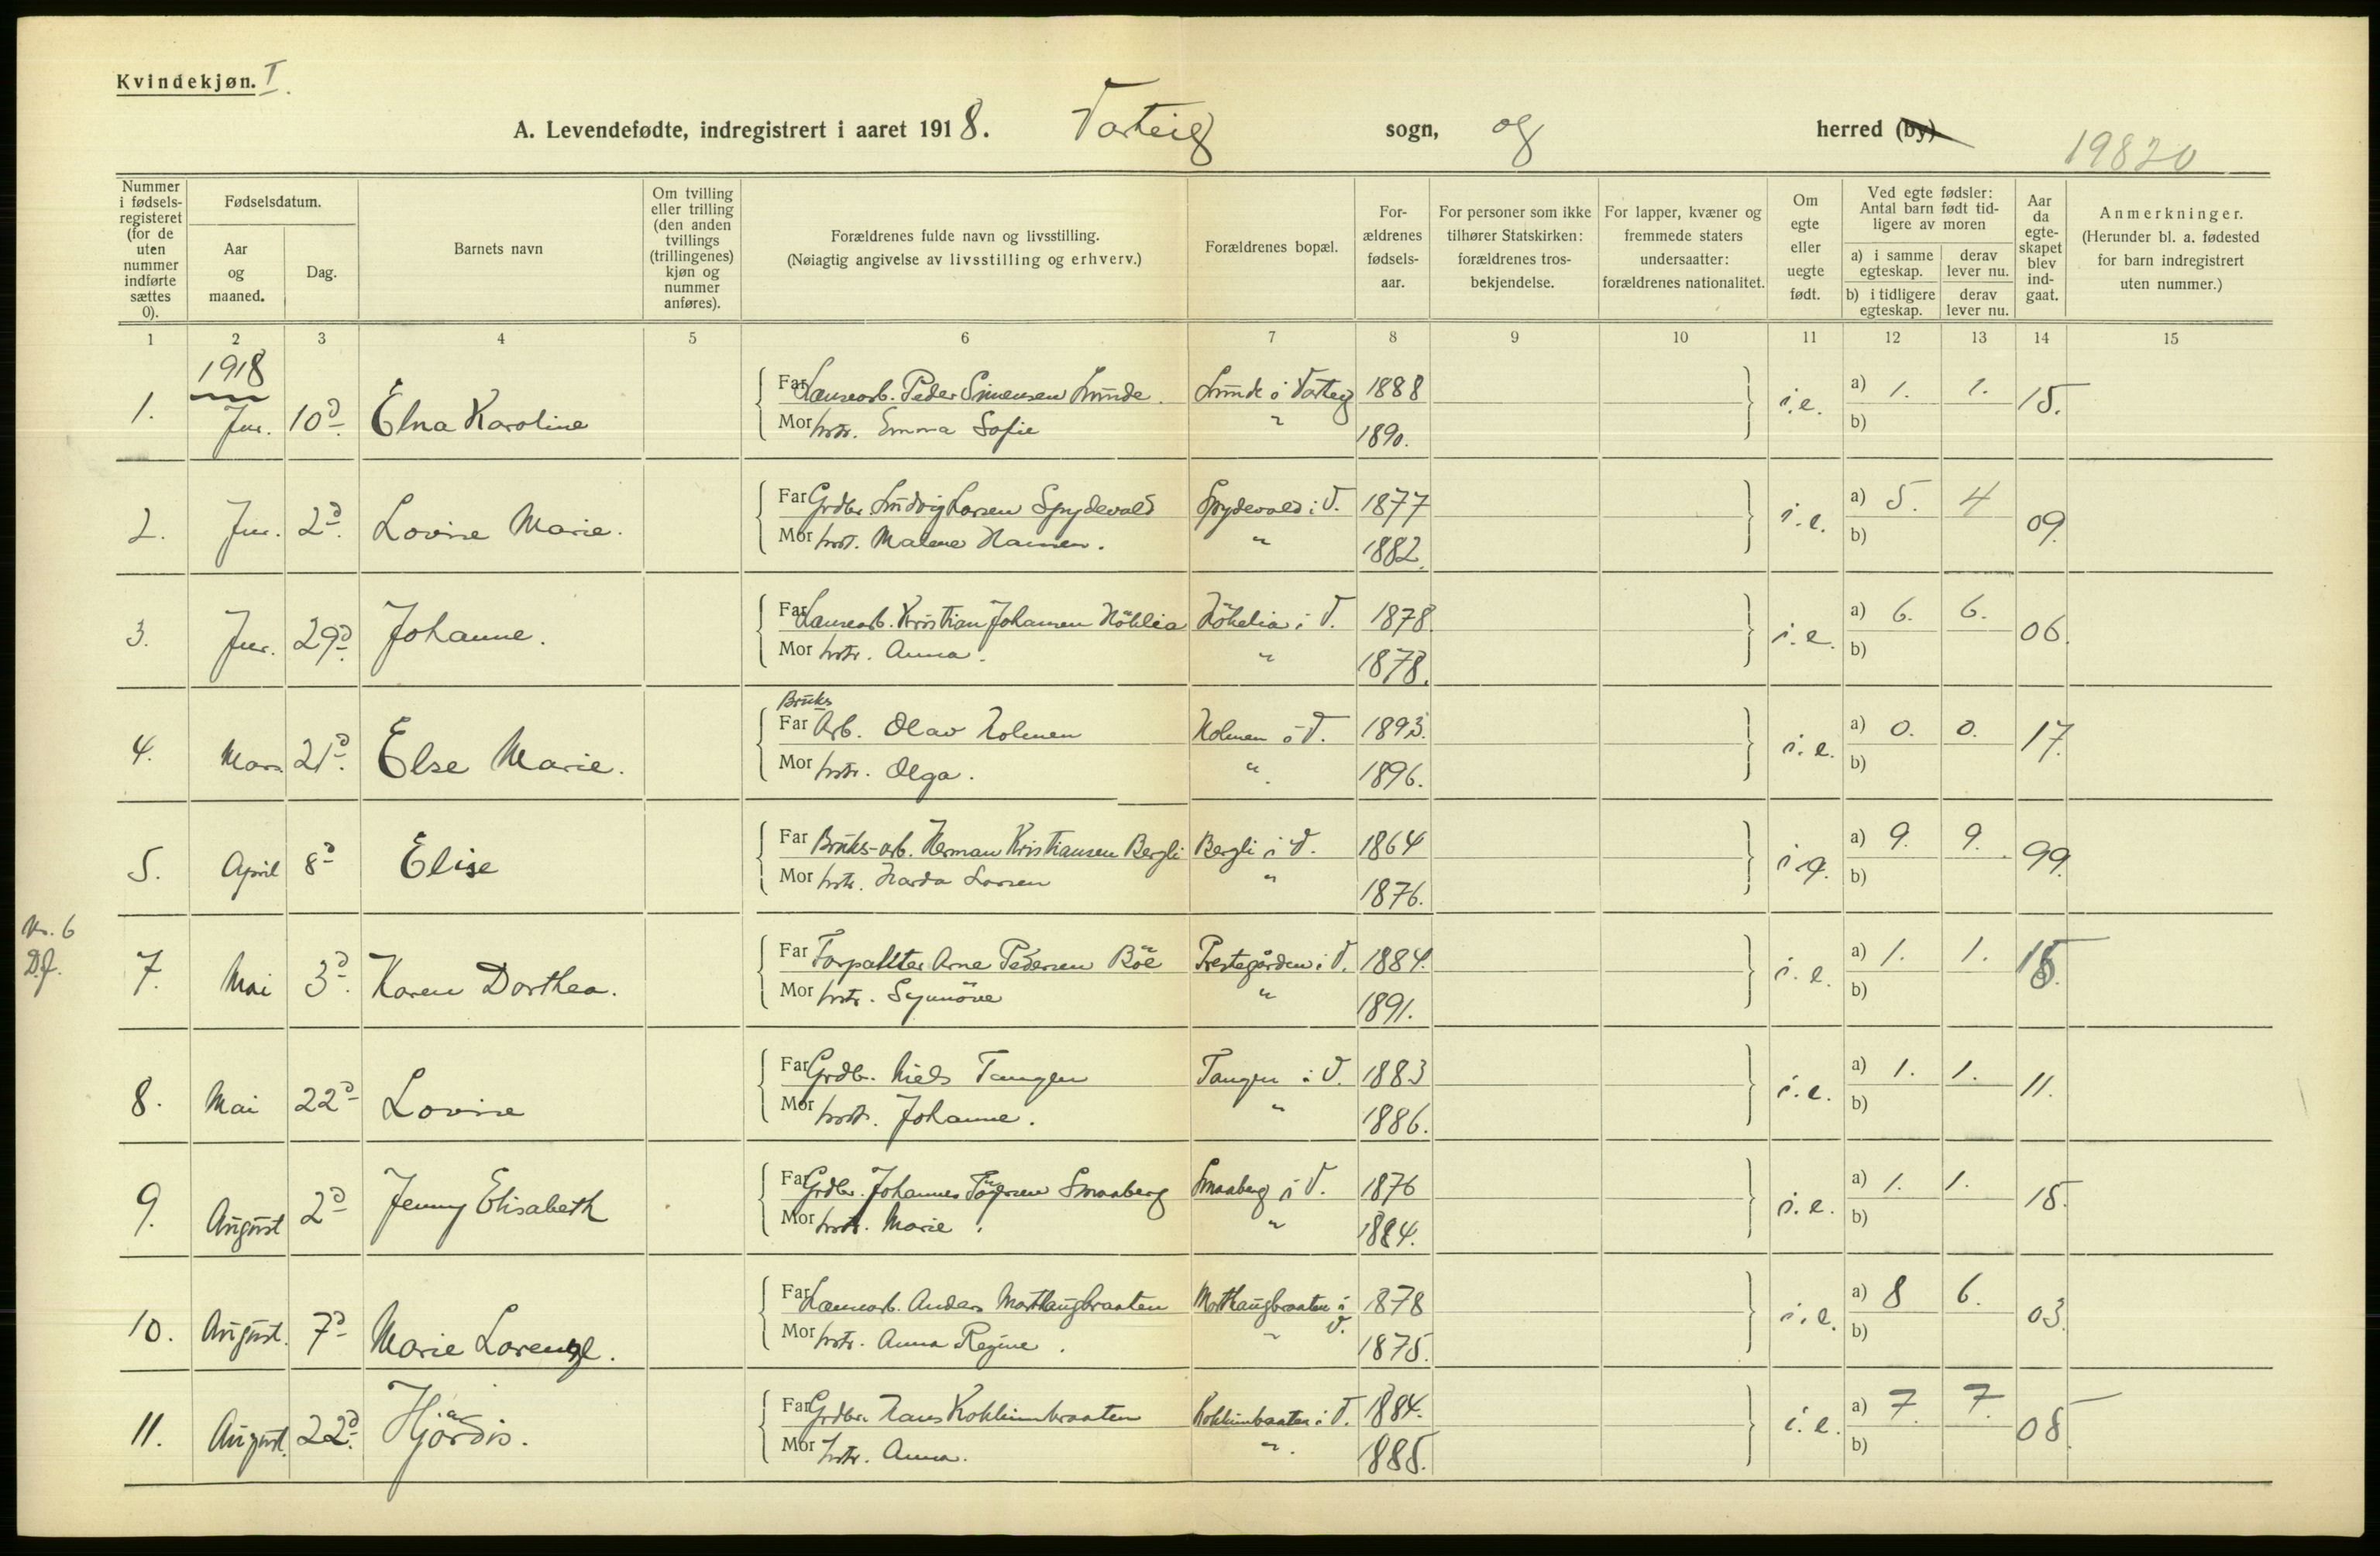 Kvindekjøn. I.
A. Levendefødte, indregistrert i aaret 1918. Varteig sogn, og herred (by)
19820
Nummer i fødselsregisteret (for de uten nummer indførte sættes 0).
Fødselsdatum.
Aar og maaned.
Dag.
Barnets navn
Om tvilling eller trilling (den anden tvillings (trillingenes) kjøn og nummer anføres).
Forældrenes fulde navn og livsstilling.
(Nøiagtig angivelse av livsstilling og erhverv.)
Forældrenes bopæl.
Forældrenes fødselsaar.
For personer som ikke tilhører Statskirken: forældrenes trosbekjendelse.
For lapper, kvæner og fremmede staters undersaatter: forældrenes nationalitet.
Om egte eller uegte født.
Ved egte fødsler: Antal barn født tidligere av moren
a) i samme egteskap. derav lever nu.
b) i tidligere egteskap. derav lever nu.
Aar da egteskapet blev indgaat.
Anmerkninger.
(Herunder bl. a. fødested for barn indregistrert uten nummer.)
1 2 3 4 5 6 7 8 9 10 11 12 13 14 15
1918
1. Jan. 10d Elna Karoline Far Lænsearb. Peder Simensen Lunde. Lunde i Varteig 1888 i.e. a) 1. 1. 15.
Mor hstr. Emma Sofie " 1890. b)
2. Jan. 2d. Lovise Marie. Far Grdbr. Ludvig Larsen Spydevold Spydevold i V. 1877 i.e. a) 5. 4 09.
Mor hstr. Malene Hansen. " 1882. b)
3. Jan. 29d. Johanne. Far Lænsearb. Kristian Johansen Høklia Høkelia i V. 1878. i.e. a) 6. 6. 06.
Mor hstr. Anna. " 1878. b)
Bruks
4. Mars 21d. Else Marie. Far Arb. Olav Holmen Holmen i V. 1893. i.e. a) 0. 0. 17.
Mor hstr. Olga. " 1896. b)
5. April 8d Elise Far Bruks-arb. Herman Kristiansen Bergli Bergli i V. 1864 i.e. a) 9. 9. 99.
Mor hstr. Harda Larsen " 1876. b)
Nr. 6
D.f.
7. Mai 3d. Karen Dorthea. Far Forpakter Arne Pedersen Bøe Prestegården i V. 1884. i.e. a) 1. 1. 15.
Mor hstr. Synnöve " 1891. b)
8. Mai 22d Lovise Far Grdb. Niels Tangen Tangen i V. 1883 i.e. a) 1. 1. 11.
Mor hstr. Johanne. " 1886. b)
9. August 2d Jenny Elisabeth Far Grdbr. Johannes Smaaberg Smaaberg i V. 1876 i.e. a) 1. 1. 15.
Mor hstr. Marie. " 1884. b)
10. August. 7d Marie Far Lænsearb. Anders Morthaugbraaten Morthaugbraaten i V. 1878 i.e. a) 8 6. 03.
Mor hstr. Anna Regine. " 1875. b)
11. August. 22d. Hjørdis. Far Grdbr. Hans Kohlimbraaten Kohlimbraaten i V. 1884. i.e. a) 7. 7. 08.
Mor hstr. Anna. " 1885. b)